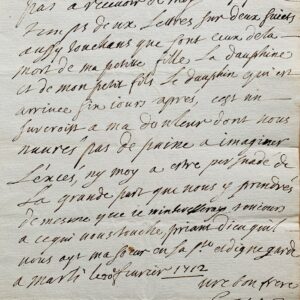 pas a recevoir de moy
temps deux Lettres sur deux sujets
aussy touchans que sont ceux de la
mort de ma petite fille La dauphine
et de mon petit fils Le dauphin qui est
arrivee six iours apres, cest un
surcroist a ma douleur dont vous
n'aures pas de peine a imaginer
L'exces, ny moy a estre persuadé de
La grande part que vous y prendrés
de mesme que ie m'interesseray tousiours
a ce qui vous touche, priant dieu quil
vous ayt ma soeur en sa ste et digne garde
a marli le 20 feurier 1712
vre bon frere